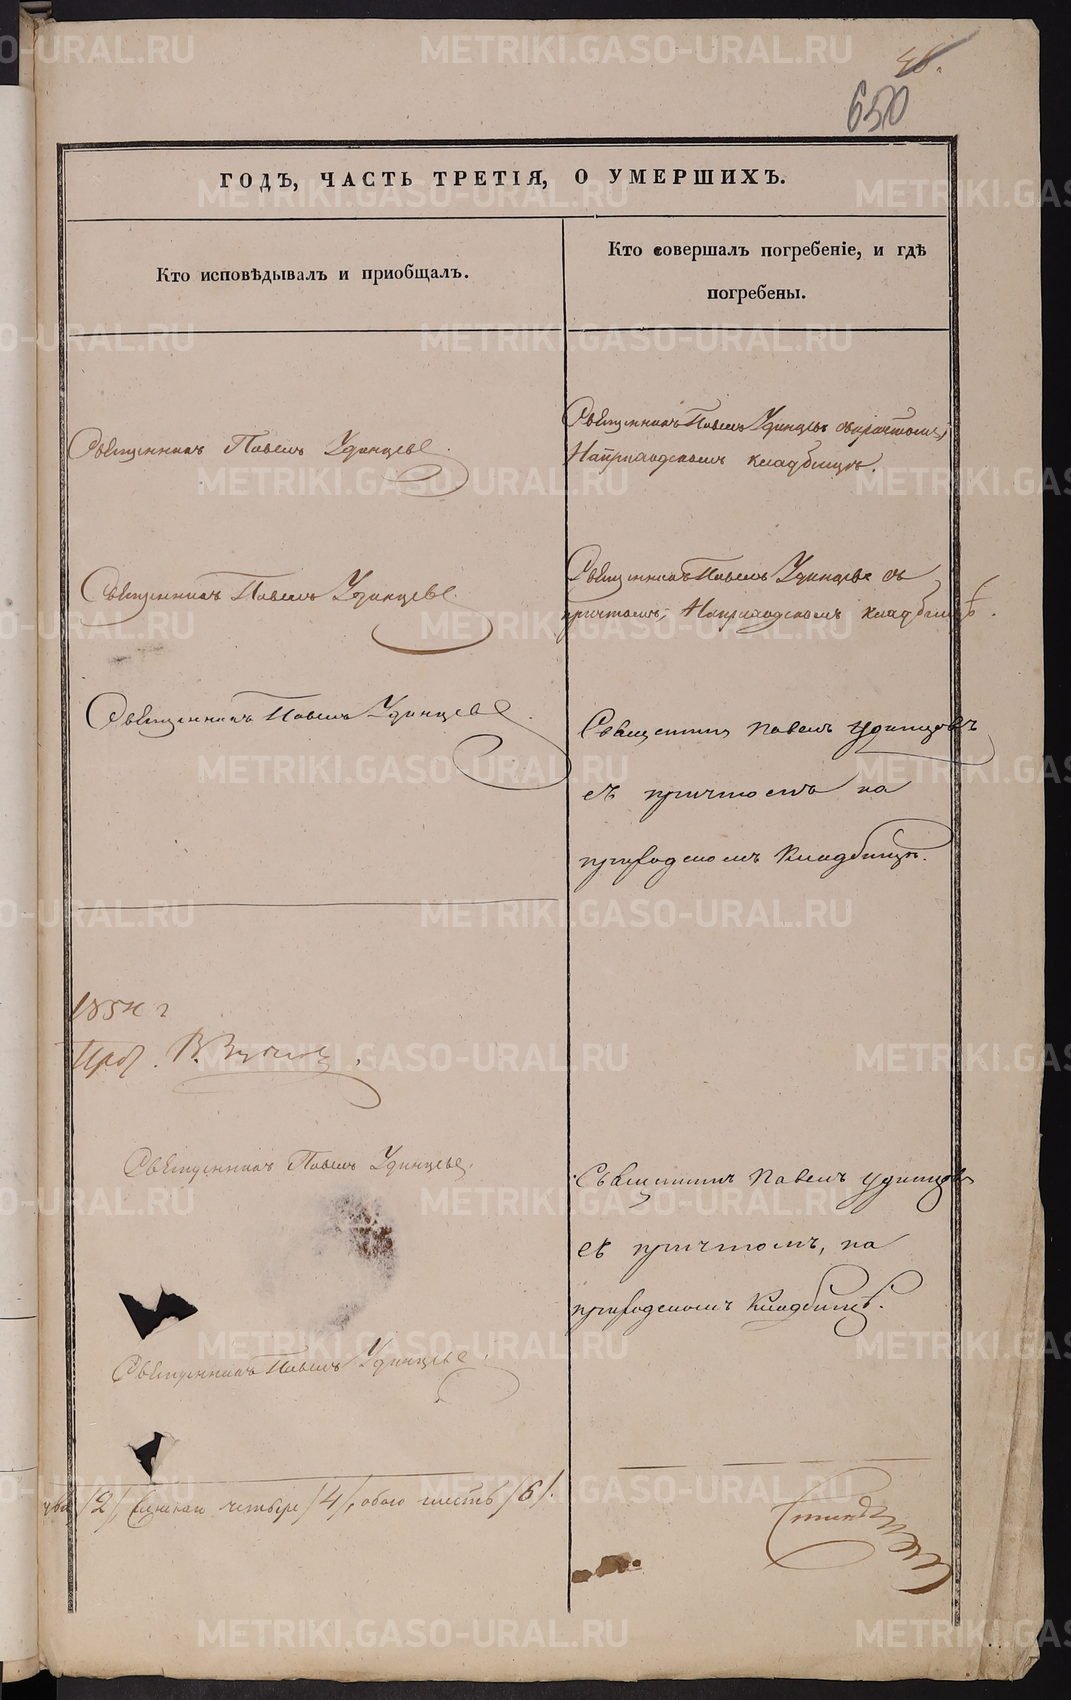 650
ГОДЪ, ЧАСТЬ ТРЕТІЯ, О УМЕРШИХЪ.
Кто исповѣдывалъ и приобщалъ.
Кто совершалъ погребеніе, и гдѣ
погребены.
Священникъ Павелъ Удинцевъ
Священникъ Павелъ Удинцевъ съ причтомъ,
На приходскомъ кладбищѣ.
Священникъ Павелъ Удинцевъ
Священникъ Павелъ Удинцевъ съ
причтомъ, На приходскомъ кладбищѣ.
Священникъ Павелъ Удинцевъ
Священникъ Павелъ Удинцовъ
съ причтомъ на
приходскомъ кладбищѣ.
Священникъ Павелъ Удинцевъ.
Священникъ Павелъ Удинцовъ
съ причтомъ, на
приходскомъ кладбищѣ.
Священникъ Павелъ Удинцевъ.
два /2/, женска четыре /4/, обоего шесть /6/.
METRIKI.GASO-URAL.RU